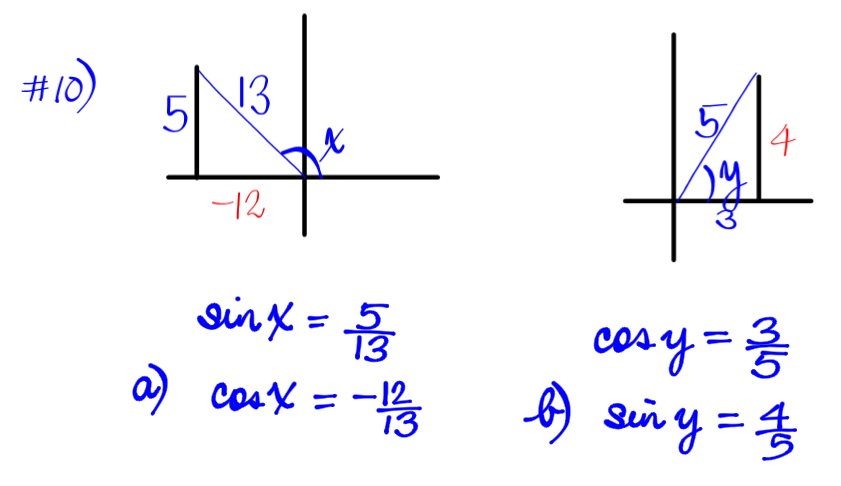 #10)
5
13
x
-12
5
y
4
3
sin x = 5/13
a) cos x = -12/13
cos y = 3/5
b) sin y = 4/5